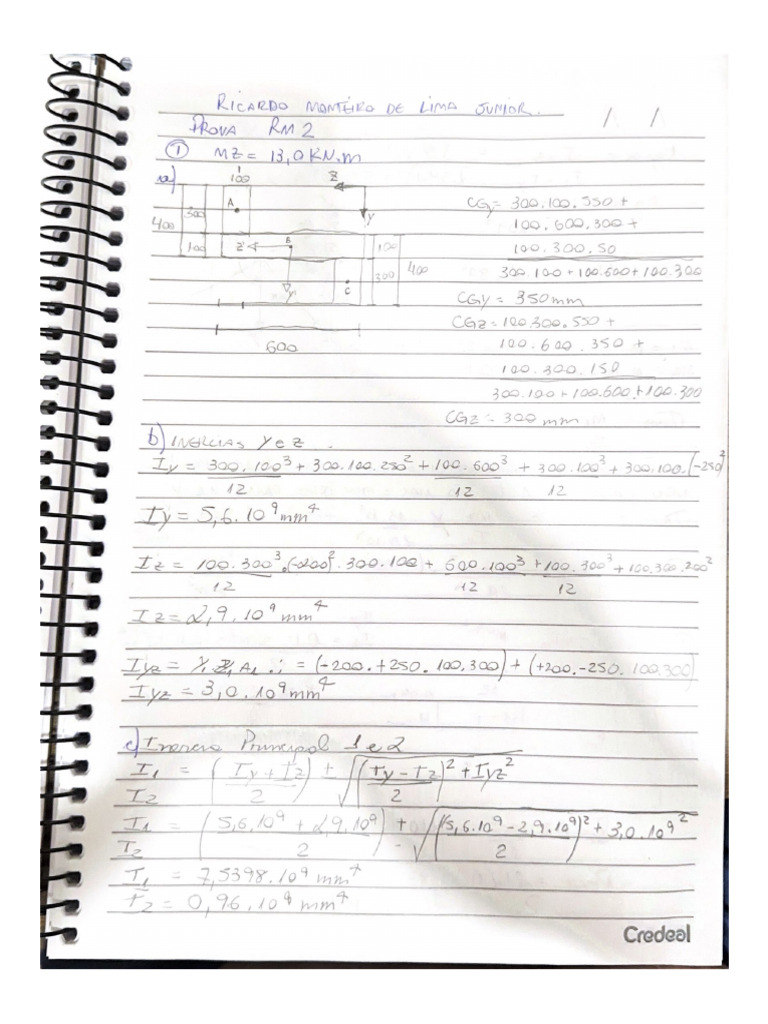 RICARDO MONTEIRO DE LIMA JUNIOR.
PROVA RM2
/ /
① MZ = 13,0 KN.m
a)
100
Z
A
Y
300
400
100
Z'
B
100
300
400
Y'
C
600
CGy = 300.100.550 +
100.600.300 +
100.300.50
300.100+100.600+100.300
CGY = 350mm
CGZ = 100.300.550 +
100.600.350 +
100.300.150
300.100+100.600+100.300
CGZ = 300mm
b) INERCIAS Y e Z
Iy = 300.100³ + 300.100.250² + 100.600³ + 300.100³ + 300.100.(-250)²
12 12 12
Iy = 5,6.10⁹ mm⁴
Iz = 100.300³.(-200)².300.100 + 600.100³ + 100.300³ + 100.300.200²
12 12 12
Iz = 2,9.10⁹ mm⁴
Iyz = Y₁.Z₁.A₁ ∴ = (-200.+250.100.300) + (+200.-250.100.300)
Iyz = 3,0.10⁹ mm⁴
c) Inercia Principal 1 e 2
I₁ = (Iy + Iz) ± √(Iy - Iz)² + Iyz²
I₂ 2 2
I₁ = (5,6.10⁹ + 2,9.10⁹) ± √(5,6.10⁹ - 2,9.10⁹)² + 3,0.10⁹²
I₂ 2 2
I₁ = 7,5398.10⁹ mm⁴
I₂ = 0,96.10⁹ mm⁴
Credeal